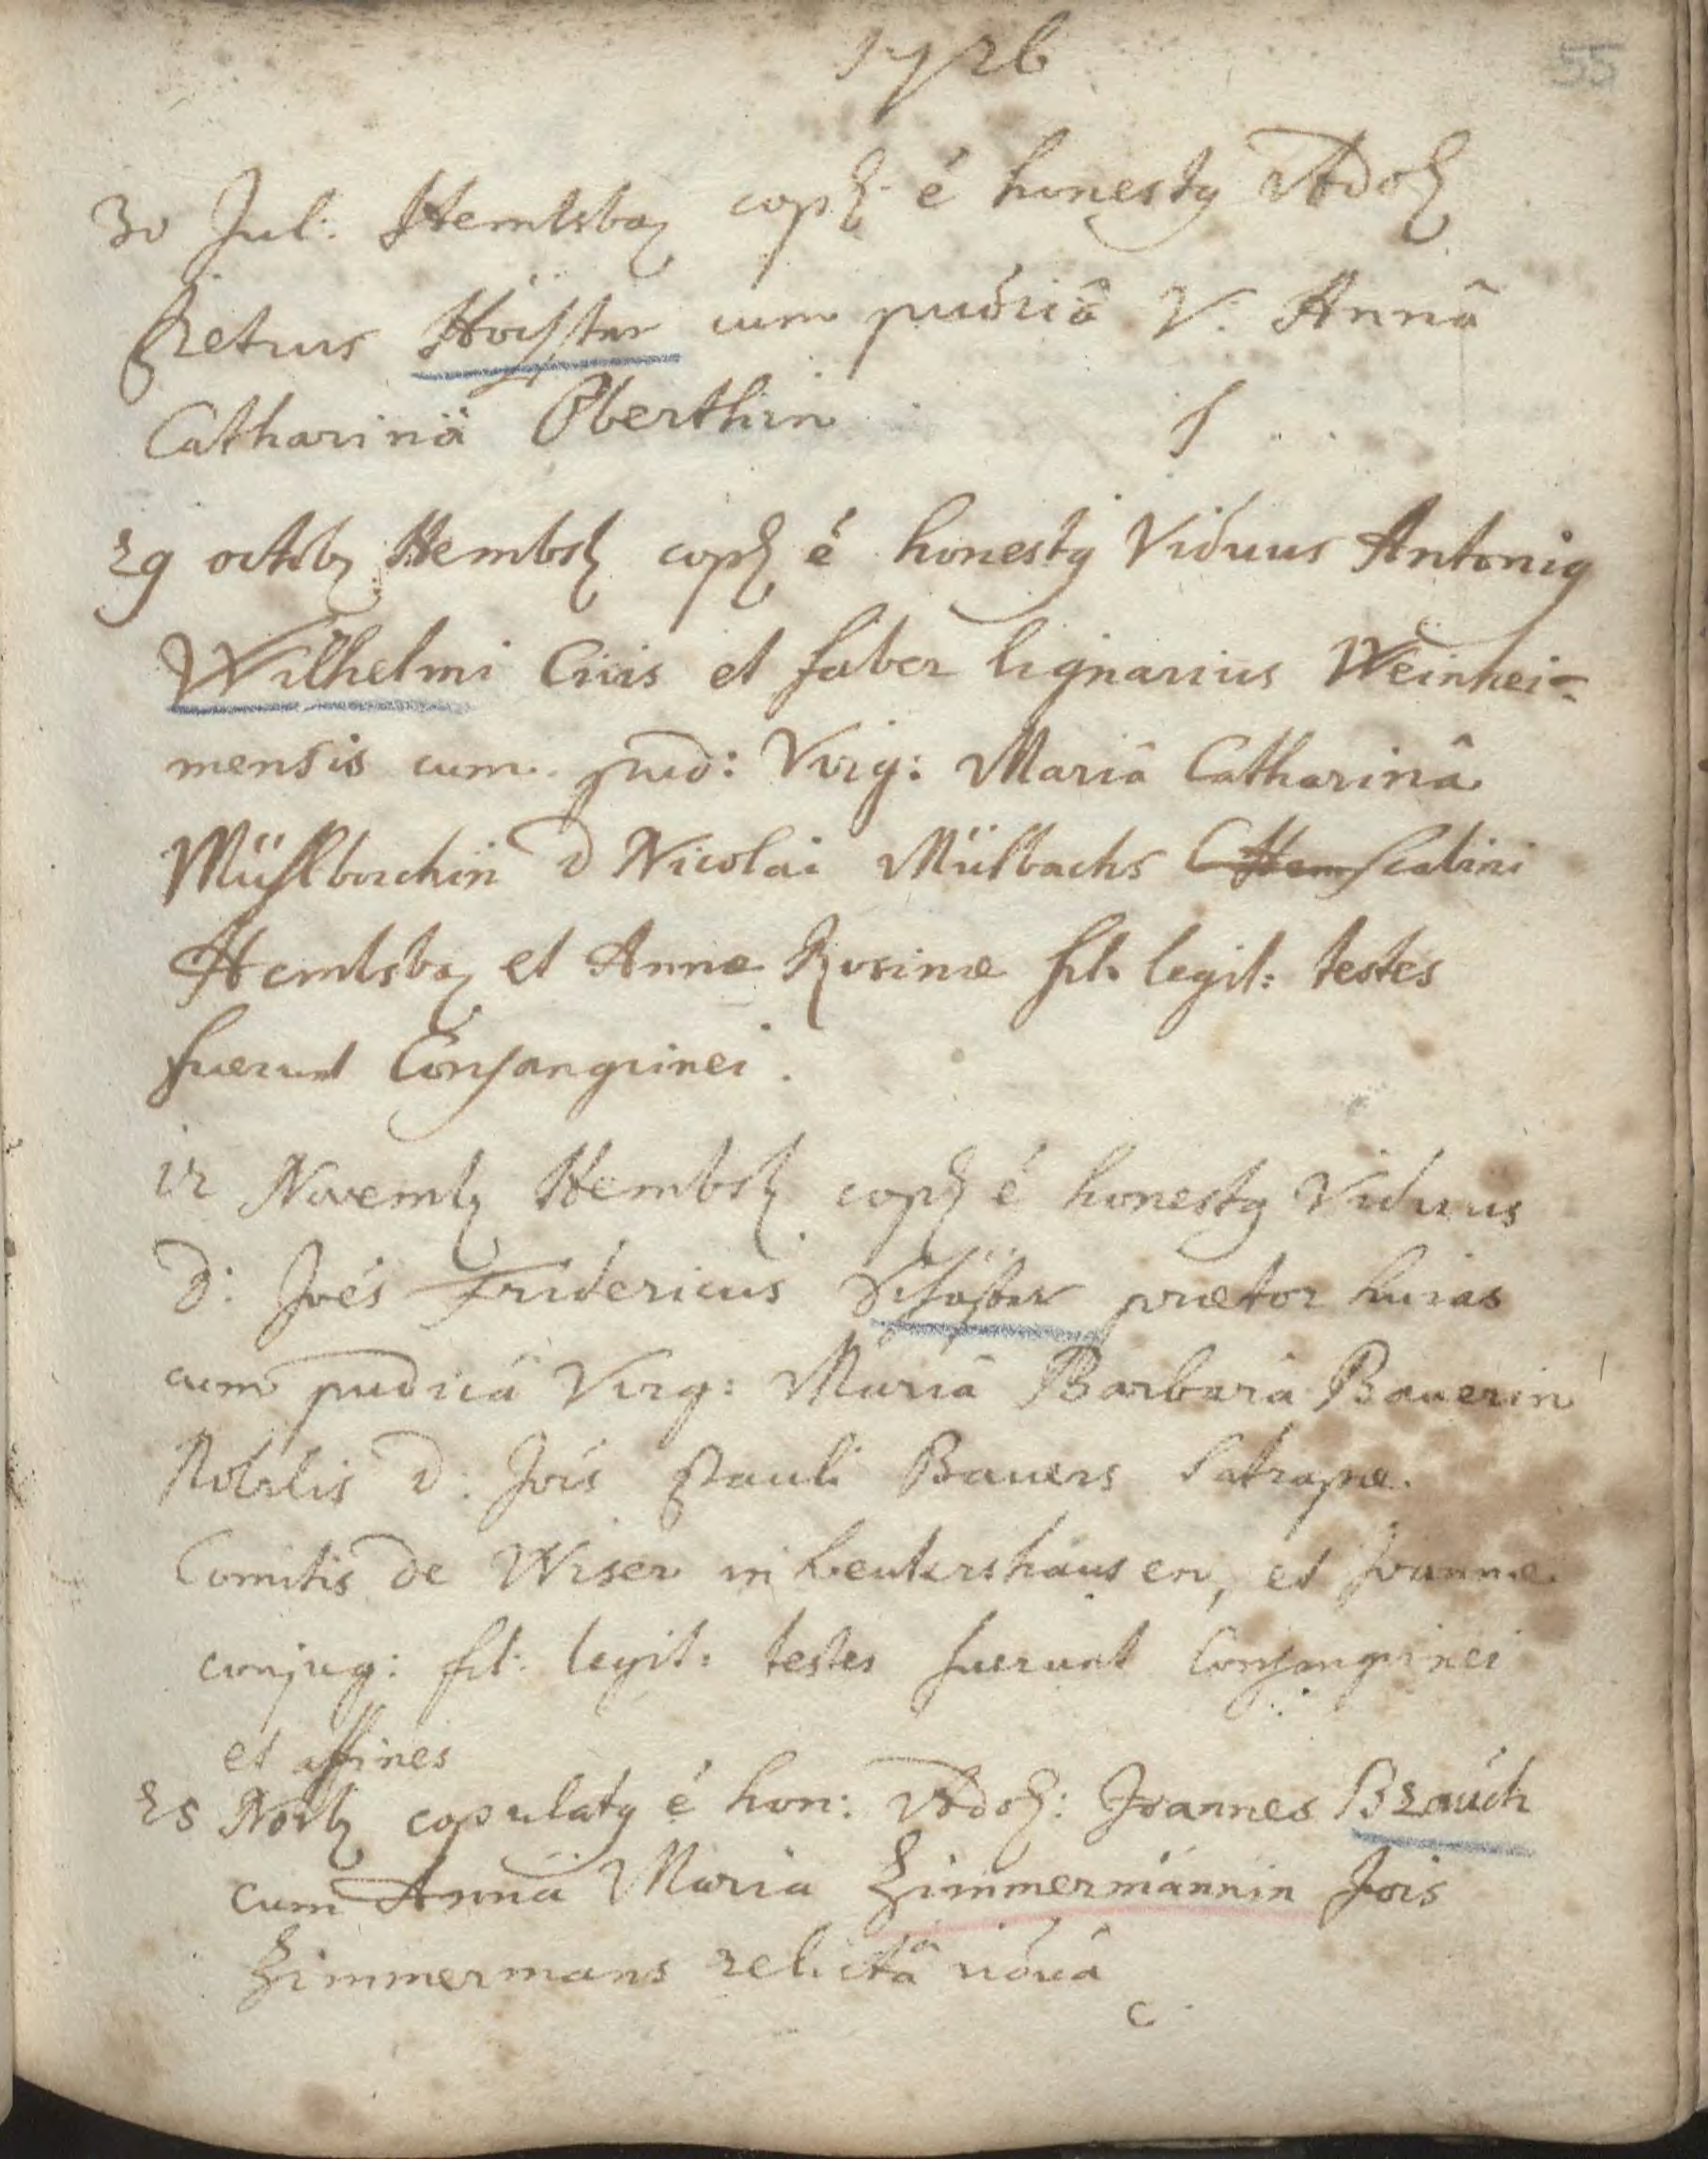 1726
55
30 Jul: Hembsb. cop. é honesty Adol.
Petrus cum pudicâ V. Annâ
Catharinâ Oberthin
29 octob. Hembsb. cop. é honesty Viduus Antonig
Wilhelmi Civis et faber lignarius Weinhei=
mensis cum pud: Virg: Mariâ Catharinâ
Müslbachin D Nicolai Müslbachs scabini
Hembsb. et Annæ Rosinæ fil. legit: testes
fuerunt Consanguinei.
12 Novemb. Hembsb. cop. é honesty Viduus
D: Joës Fridericus Schäffer prætor huias
cum pudicâ Virg: Mariâ Barbarâ Bauerin
Nobilis D. Jois Pauli Bauers Satrapæ
Comitis de Wiser in Leutershausen, et Joannæ
conjug: fil: legit: testes fuerunt Consanguinei
et affines
25 Novb. copulaty é hon: Adol.: Joannes Brauch
cum Annâ Maria Zimmermännin Jois
Zimmermans relictâ viduâ